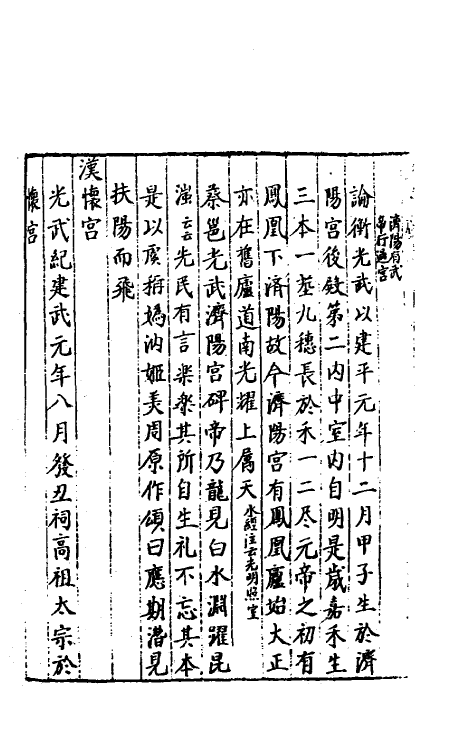 濟陽有武
帝行過宮
論衡光武以建平元年十二月甲子生於濟
陽宮後殿第二内中室内自明是歲嘉禾生
三本一莖九穗長於禾一二尺元帝之初有
鳳凰下済陽故今濟陽宮有鳳凰廬始大正
亦在舊廬道南光耀上属天水經注云光明照室
蔡邕光武濟陽宮碑帝乃龍見白水淵躍昆
滍云云先民有言樂樂其所自生礼不忘其本
是以虞稱媯汭姬美周原作頌曰應期潜見
扶陽而飛
漢懷宮
光武紀建武元年八月癸丑祠高祖太宗於
懷宮